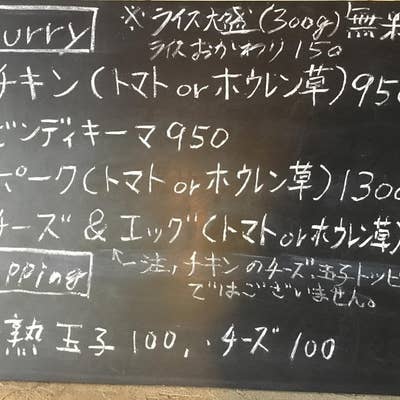 urry ※ライス大盛(300g)無料
ライスおかわり150
チキン(トマトorホウレン草)950
ビンディキーマ950
ポーク(トマトorホウレン草)1300
チーズ&エッグ(トマトorホウレン草)
pping ←注,チキンのチーズ、玉子トッピ
ではございません。
熟玉子100,・チーズ100